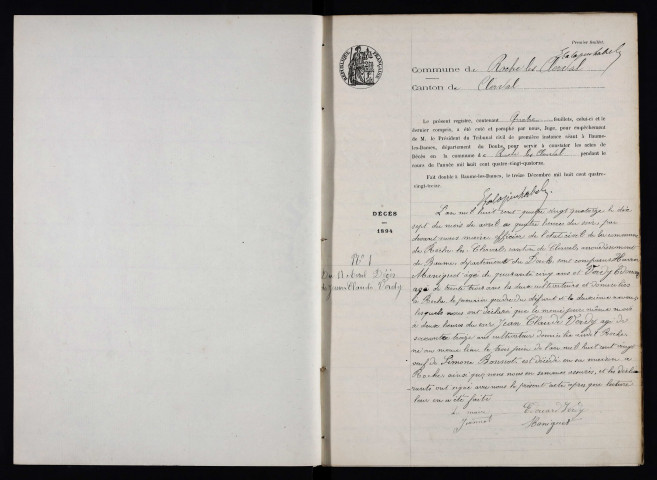 Premier feuillet.
RÉPUBLIQUE FRANÇAISE
Commune de Roche les Clerval
Canton de Clerval
Le présent registre, contenant quatre feuillets, celui-ci et le
dernier compris, a été coté et paraphé par nous, Juge, pour empêchement
de M. le Président du Tribunal civil de première instance séant à Baume-
les-Dames, département du Doubs, pour servir à constater les actes de
Décès en la commune de Roche les Clerval pendant le
cours de l'année mil huit cent quatre-vingt-quatorze.
Fait double à Baume-les-Dames, le treize Décembre mil huit cent quatre-
vingt-treize.
DÉCÈS
1894
N° 1
Du Avril Décès
de Jean Claude Verdy
L'an mil huit cent quatre vingt quatorze le dix
sept du mois de avril à quatre heures du soir, par
devant nous maire officier de l'état civil de la commune
de Roche les Clerval, canton de Clerval, arrondissement
de Baume, département du Doubs, sont comparus
Maniguet âgé de quarante cinq ans et Verdy
âgé de trente trois ans les deux cultivateurs et domiciliés
à Roche le premier gendre du défunt et le deuxième
lesquels nous ont déclaré que le
à deux heures du soir Jean Claude Verdy âgé de
soixante treize ans cultivateur domicilié audit Roche
né au même lieu le trois juin de l'an mil huit cent vingt
de Simone est décédé en sa maison à
Roche ainsi que nous nous en sommes assurés, et les décla-
rants ont signé avec nous le présent acte après que lecture
leur en a été faite
Le maire
Verdy
Maniguet